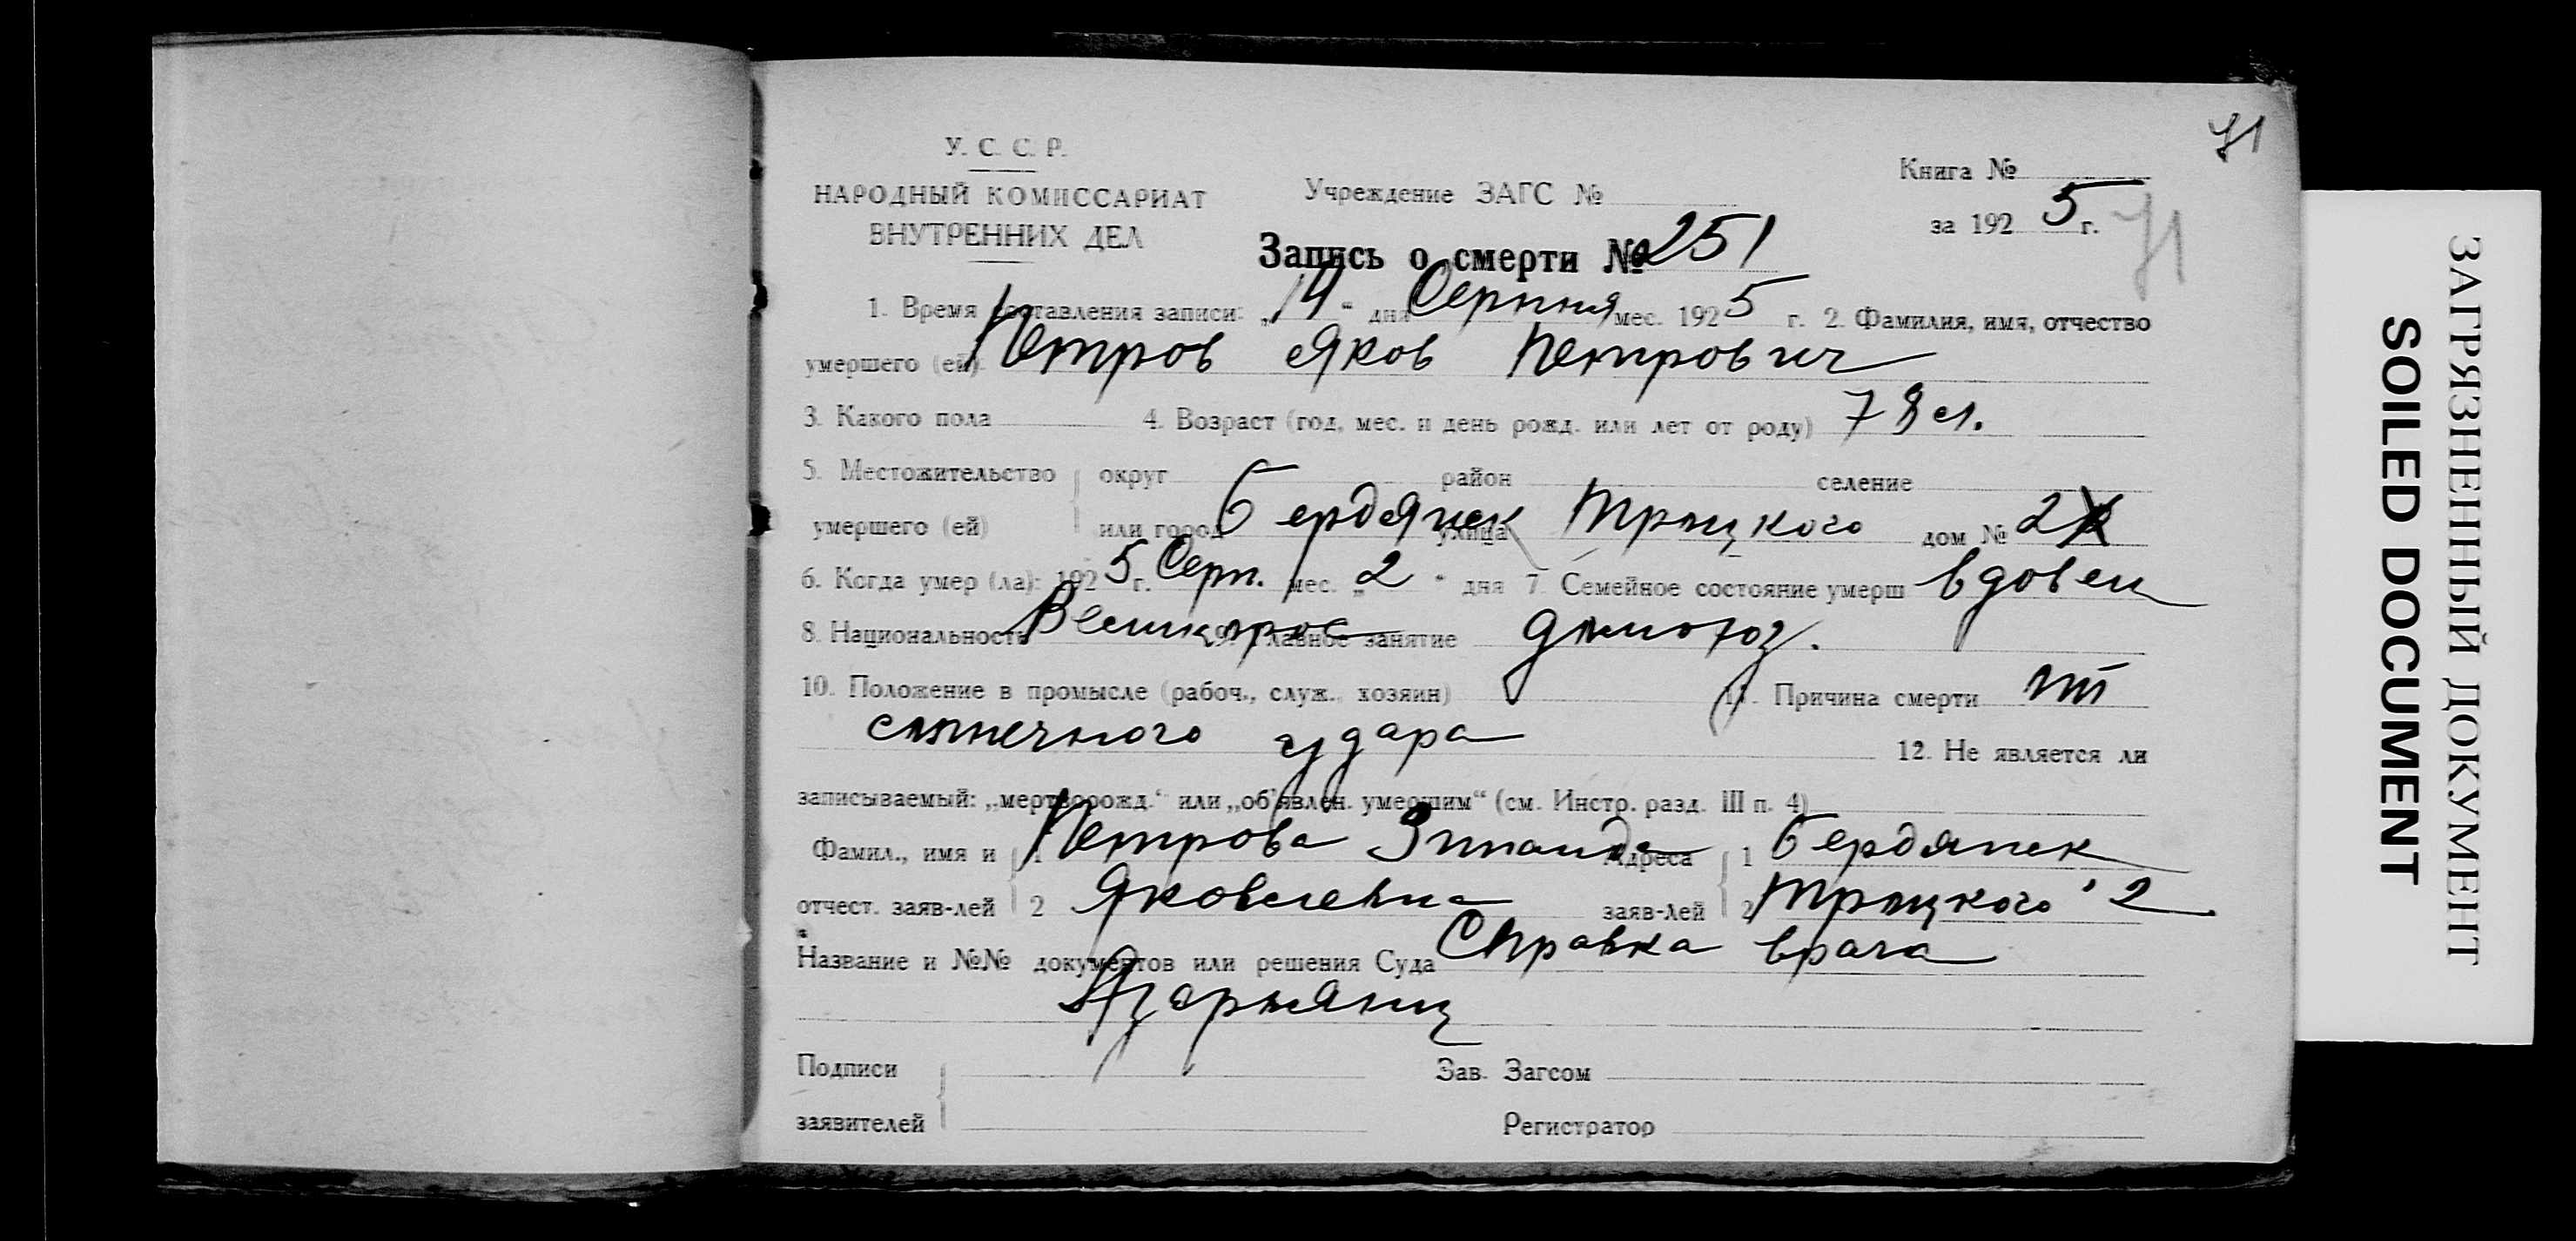 71
У. С. С. Р.
НАРОДНЫЙ КОМИССАРИАТ
ВНУТРЕННИХ ДЕЛ
Учреждение ЗАГС №
Книга №
за 192 5 г.
71
Запись о смерти № 251
1. Время составления записи: „14“ дня Серпня мес. 1925 г. 2. Фамилия, имя, отчество
умершего (ей) Петров Яков Петрович
3. Какого пола 4. Возраст (год, мес. и день рожд. или лет от роду) 78 л.
5. Местожительство округ район селение
умершего (ей) или город Бердянск улица Троцкого дом № 2
6. Когда умер (ла): 1925 г. Серп. мес. „2“ дня 7. Семейное состояние умерш вдовец
8. Национальность Великорос 9. Главное занятие
10. Положение в промысле (рабоч., служ., хозяин) 11. Причина смерти от
солнечного удара 12. Не является ли
записываемый: „мертворожд.“ или „об'явлен. умершим“ (см. Инстр. разд. III п. 4)
Фамил., имя и 1 Петрова Зинаида Адреса 1 Бердянск
отчест. заяв-лей 2 Яковлевна заяв-лей 2 Троцкого 2
Название и №№ документов или решения Суда Справка врача
Подписи
заявителей
Зав. Загсом
Регистратор
ЗАГРЯЗНЕННЫЙ ДОКУМЕНТ
SOILED DOCUMENT